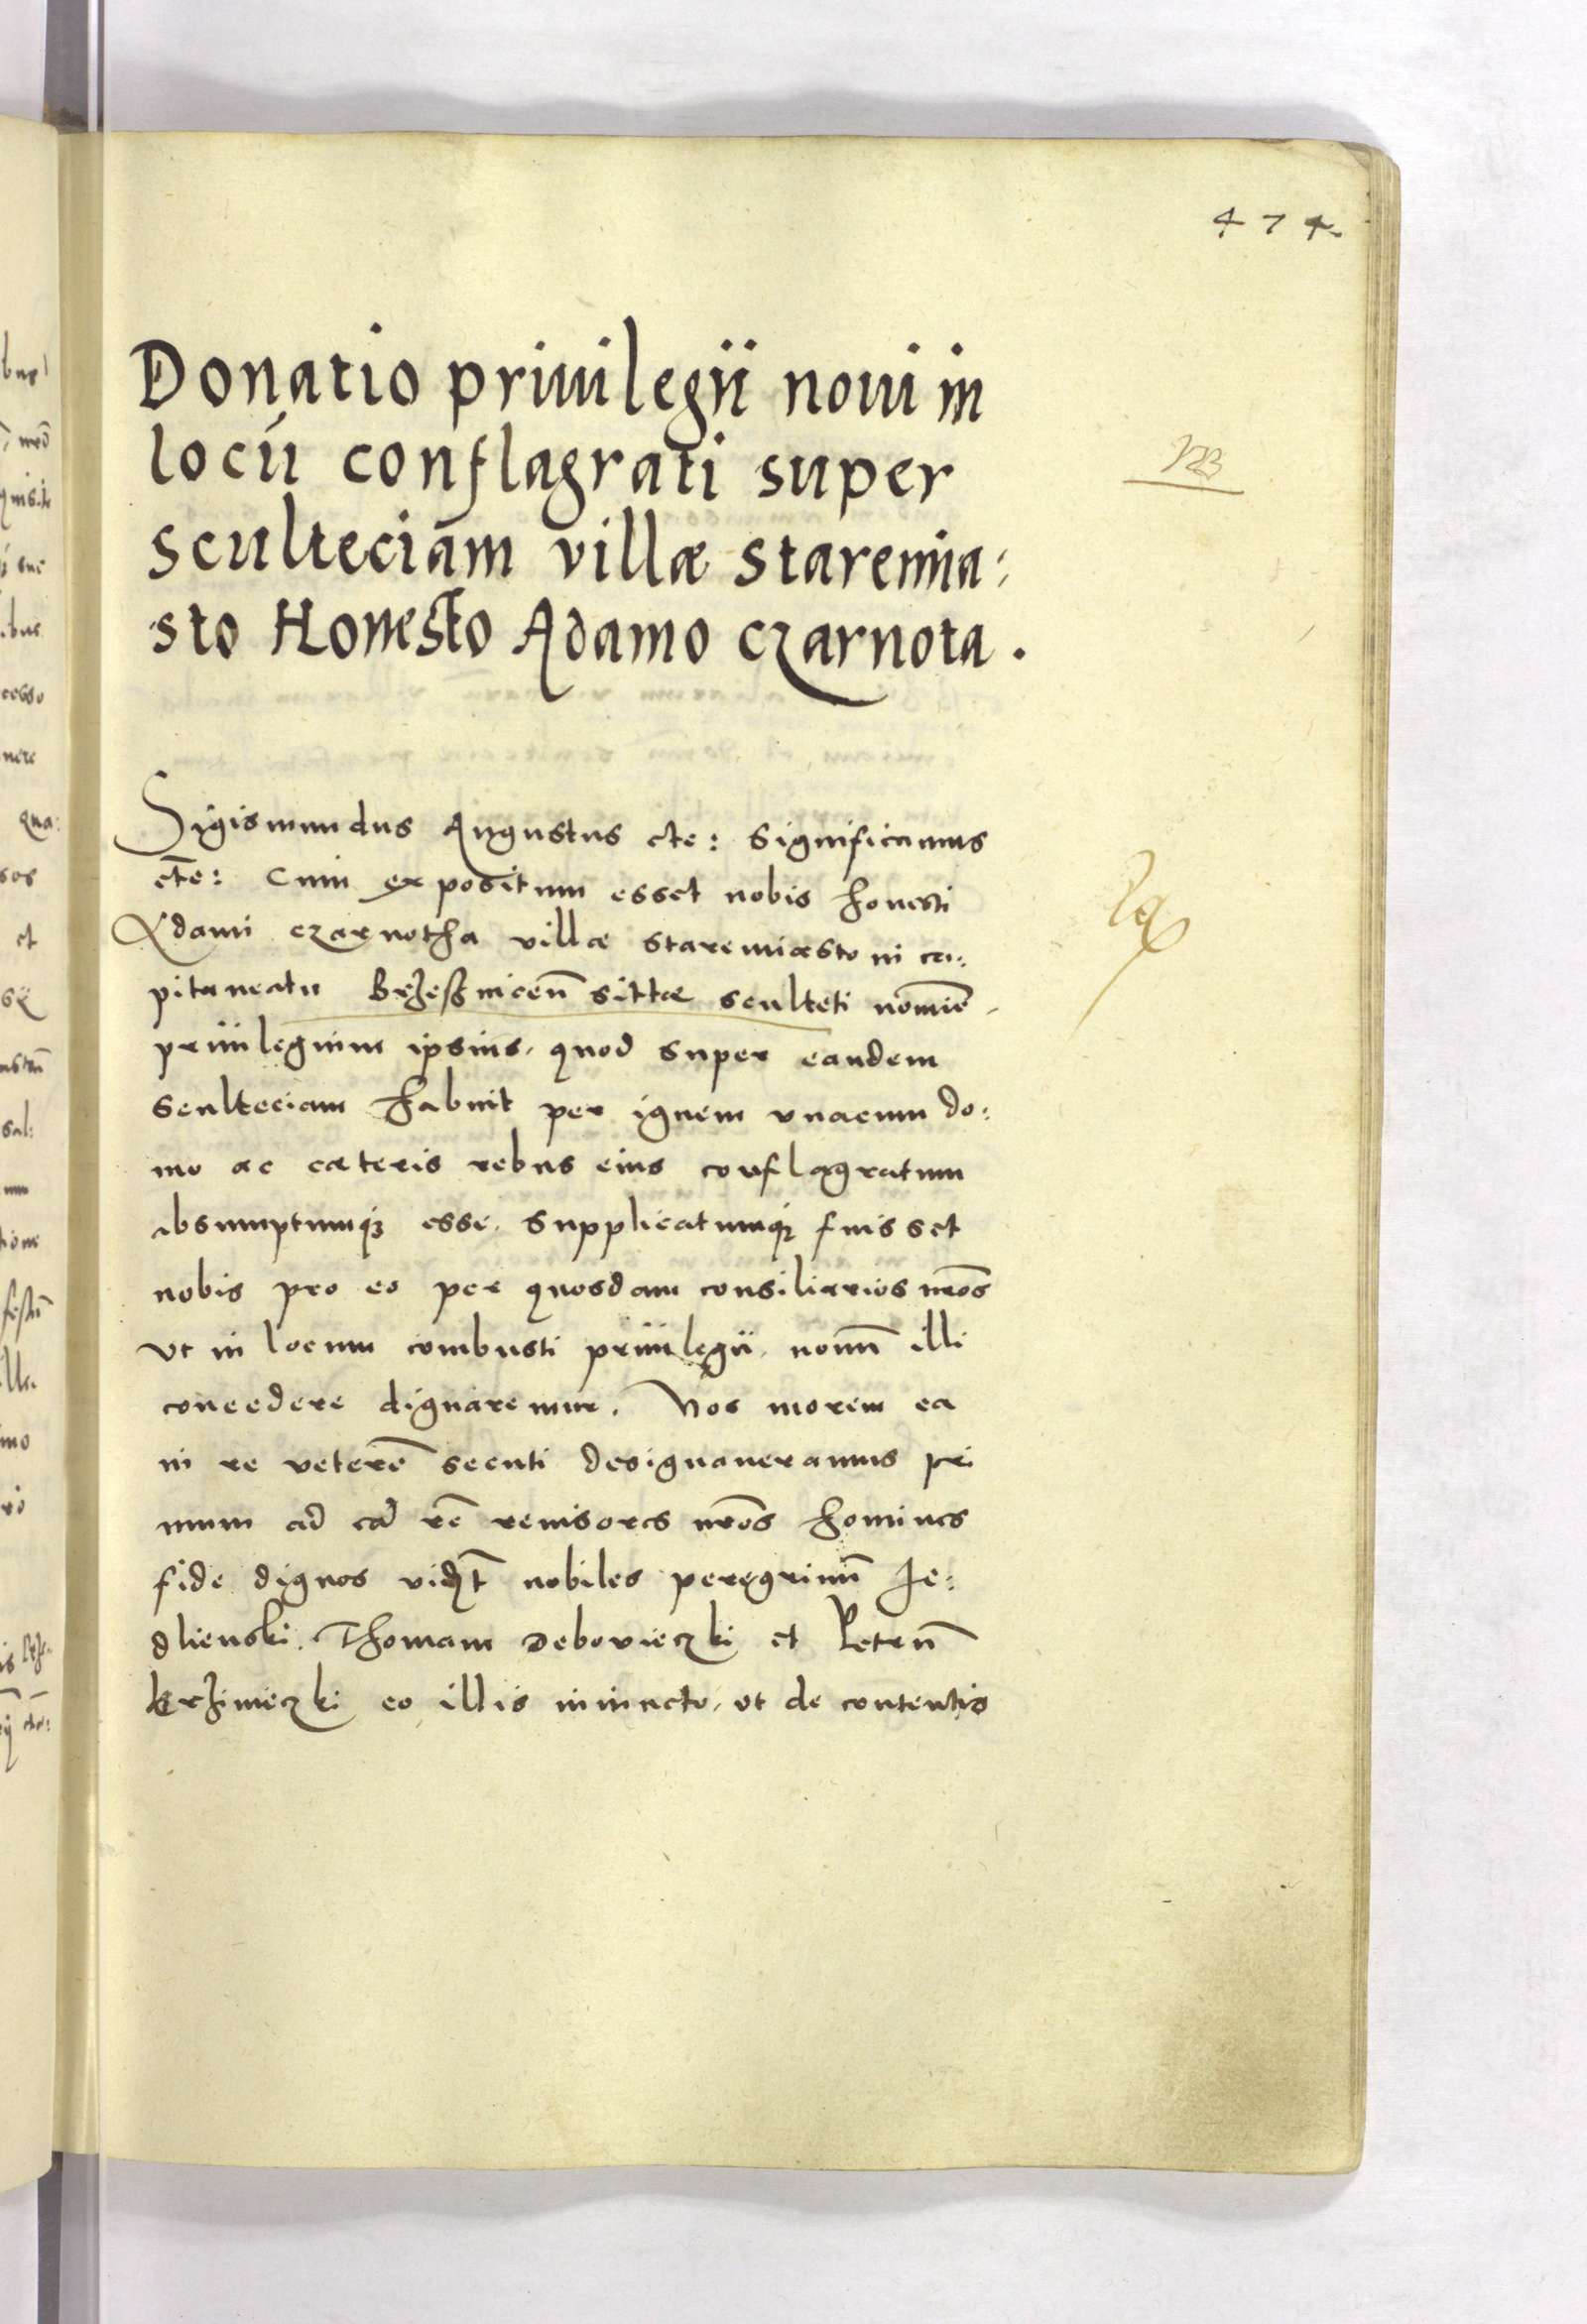 474.
Donatio priuilegii noui in
locū conflagrati super
sculteciam villæ staremia:
sto Honesto Adamo czarnota.
NB
Sigismundus Augustus etc: Significamus
etc: Cum expositum esset nobis honesti
Adami czarnotha villæ staremiasto in ca:
pitaneatu Brzeßnicen̄ sittæ sculteti nomīe
priuilegium ipsius, quod super eandem
sculteciam habuit per ignem vnacum do:
mo ac cæteris rebus eius conflagratum
absumptumqȝ esse, supplicatumqȝ fuisset
nobis pro eo per quosdam consiliarios nr̄os
vt in locum combusti priuilegii, nouū illi
concedere dignaremur. Nos morem ea
in re veterē secuti designaueramus pri
mum ad eā rē reuisores nr̄os homines
fide dignos vidzt̄ nobiles peregrinū Je:
dlienski, Thomam Debovieczki et Petrū
krzimeczki eo illis iniuncto, vt de contentis